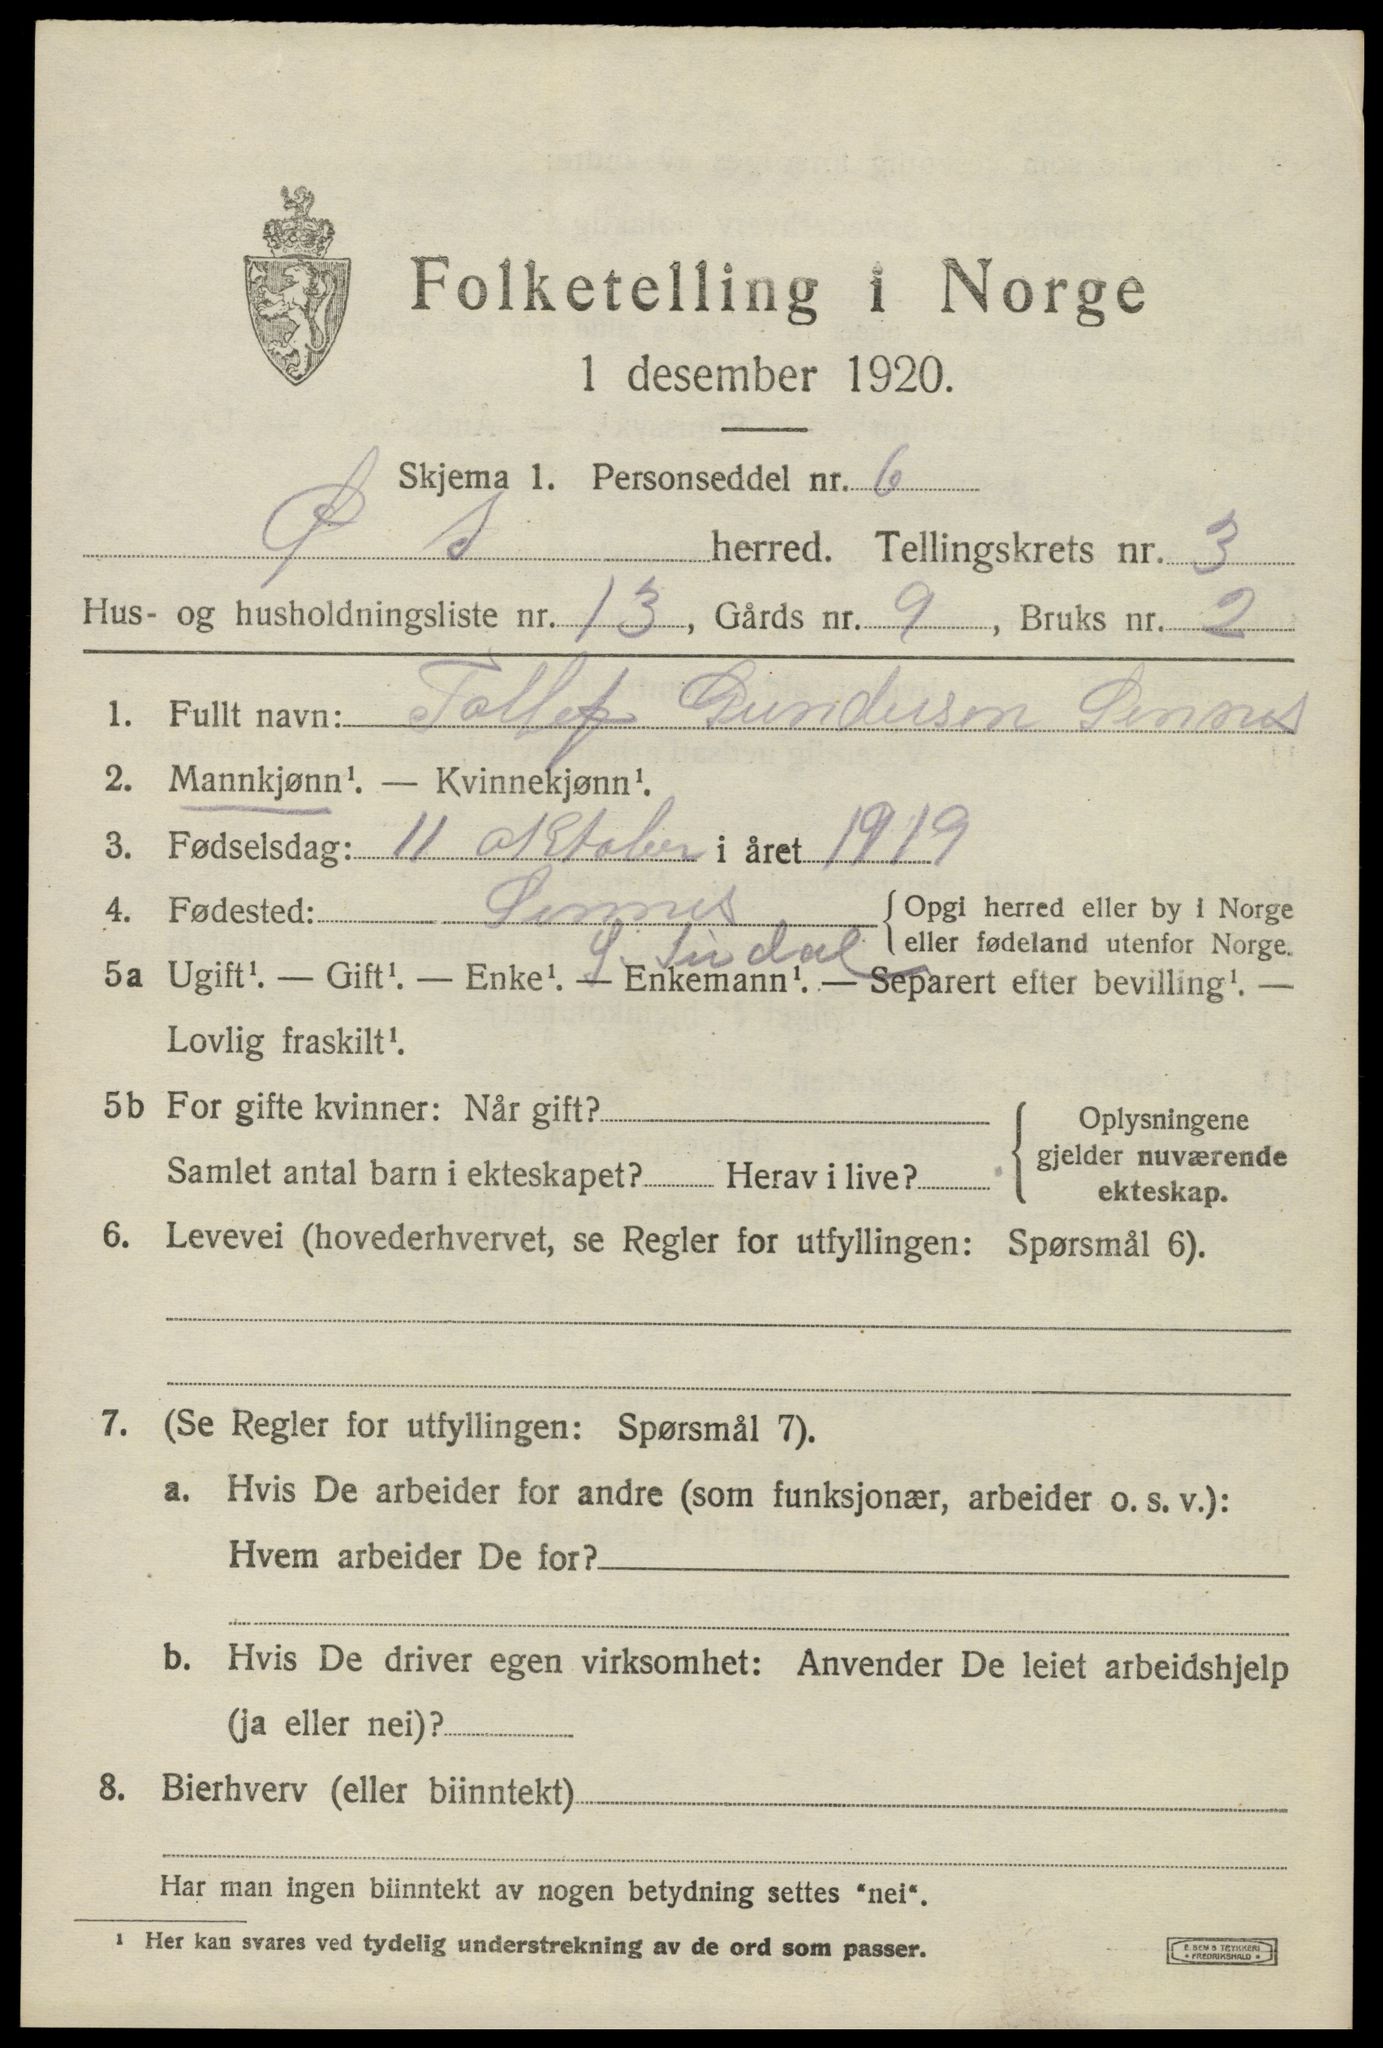 Folketelling i Norge
1 desember 1920.
Skjema 1. Personseddel nr. 6
Ø S herred. Tellingskrets nr. 3
Hus- og husholdningsliste nr. 13, Gårds nr. 9, Bruks nr. 2
1. Fullt navn: Tollef Gunderson Sinnes
2. Mannkjønn¹. — Kvinnekjønn¹.
3. Fødselsdag: 11 oktober i året 1919
4. Fødested: Sinnes { Opgi herred eller by i Norge
S. Sirdal eller fødeland utenfor Norge.
5a Ugift¹. — Gift¹. — Enke¹. — Enkemann¹. — Separert efter bevilling¹. —
Lovlig fraskilt¹.
5b For gifte kvinner: Når gift? { Oplysningene
gjelder nuværende
Samlet antal barn i ekteskapet? Herav i live?
ekteskap.
6. Levevei (hovederhvervet, se Regler for utfyllingen: Spørsmål 6).
7. (Se Regler for utfyllingen: Spørsmål 7).
a. Hvis De arbeider for andre (som funksjonær, arbeider o. s. v.):
Hvem arbeider De for?
b. Hvis De driver egen virksomhet: Anvender De leiet arbeidshjelp
(ja eller nei)?
8. Bierhverv (eller biinntekt)
Har man ingen biinntekt av nogen betydning settes "nei".
¹ Her kan svares ved tydelig understrekning av de ord som passer.
FREDRIKSHALD